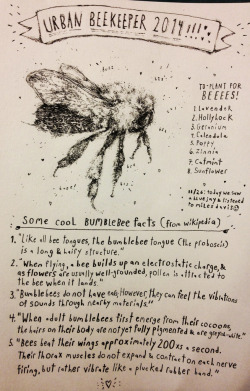 URBAN BEEKEEPER 2014!!!
TO-PLANT FOR
BEEEES!
1. Lavender
2. Hollyhock
3. Geranium
4. Calendula
5. Poppy
6. Zinnia
7. Catmint
8. Sunflower
today we saw
a
listened
to
Some cool BUMBLEBEE Facts (from wikipedia)
1. "Like all bee tongues, the bumblebee tongue (the proboscis)
is a long & hairy structure."
2. "When flying, a bee builds up an electrostatic charge, &
as flowers are usually well-grounded, pollen is attracted to
the bee when it lands."
3. "Bumblebees do not have ears; However, they can feel the vibrations
of sounds through nearby materials."
4. "When adult bumblebees first emerge from their cocoons,
the hairs on their body are not yet fully pigmented & are greyish-white."
5. "Bees beat their wings approximately 200 xs a second.
Their thorax muscles do not expand & contract on each nerve
firing, but rather vibrate like a plucked rubber band."